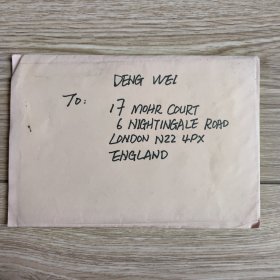 DENG WEI
To: 17 MOHR COURT
6 NIGHTINGALE ROAD
LONDON N22 4PX
ENGLAND